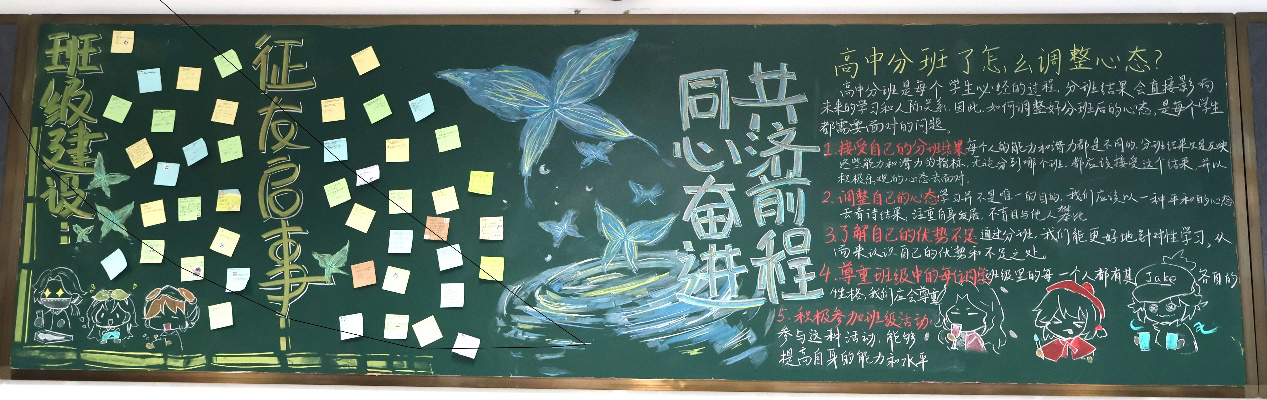 班级建设：
征友启事
同心奋进
共济前程
高中分班了怎么调整心态？
高中分班是每个学生必经的过程，分班结果会直接影响
未来的学习和人际关系，因此，如何调整好分班后的心态，是每个学生
都需要面对的问题。
1.接受自己的分班结果 每个人的能力和潜力都是不同的，分班结果只是反映
这些能力和潜力的指标，无论分到哪个班，都应该接受这个结果，并以
积极乐观的心态去面对。
2.调整自己的心态 学习并不是唯一的目的，我们应该以一种平和的心态
去看待结果，注重自身发展，不盲目与他人攀比
3.了解自己的优势不足 通过分班，我们能更好地针对性学习，从
而来认识自己的优势和不足之处
4.尊重班级中的每位同学 班级里的每一个人都有其各自的
性格，我们应会尊重
Jake
5.积极参加班级活动
参与这种活动，能够
提高自身的能力和水平